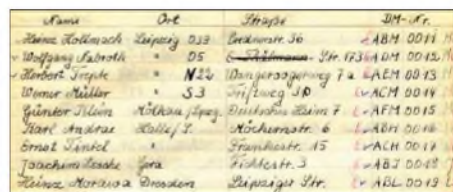 Name Ort Straße DM-Nr.
Heinz Hollmach Leipzig 033 36 ABM 0011
Wolfgang " 05 E. Thälmann-Str. 173 ADM 0012
Herbert " N22 Wangerooger weg 7a AEM 0013
Werner Müller " S3 Triftweg ACM 0014
Günter Blüm Mölkau/Lpzg. Deutsches Heim 7 AFM 0015
Karl Andrae Halle/S. Möckernstr. 6 ABH 0016
Ernst " Franckestr. 15 ACH 0017
Joachim Gera Fichtestr. 3 ABJ 0018
Heinz Morawa Dresden Leipziger Str. ABL 0019